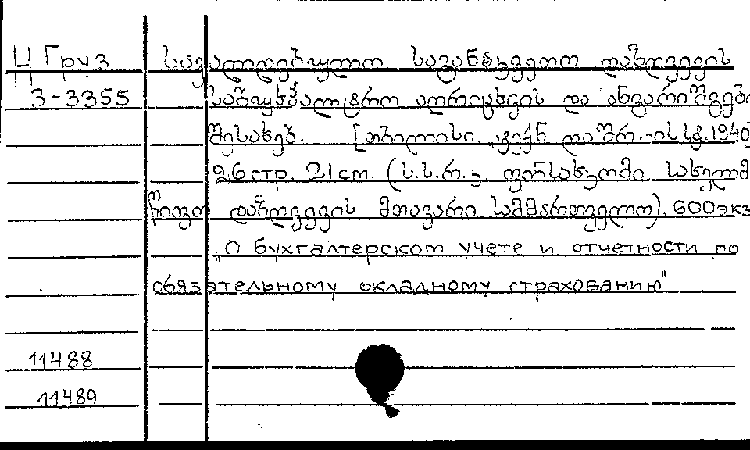 Ц Груз
3-3355
სავალდებულო საგანაკვეთო დაზღვევის
საბუხჰალტრო აღრიცხვის და ანგარიშგების
შესახებ. [თბილისი, ტექნ. და შრ.-ის სტ. 1940]
26 стр. 21 cm. (ს.ს.რ.კ. ფინსახკომი. სახელმ-
წიფო დაზღვევის მთავარი სამმართველო). 600 экз.
„О бухгалтерском учете и отчетности по
обязательному окладному страхованию"
11488
11489